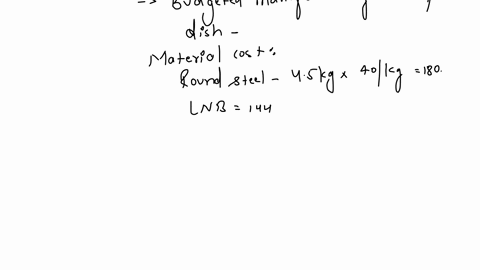 -> Budgeted
dish -
Material cost:
Round steel - 4.5kg x 40/kg = 180.
LNB = 144